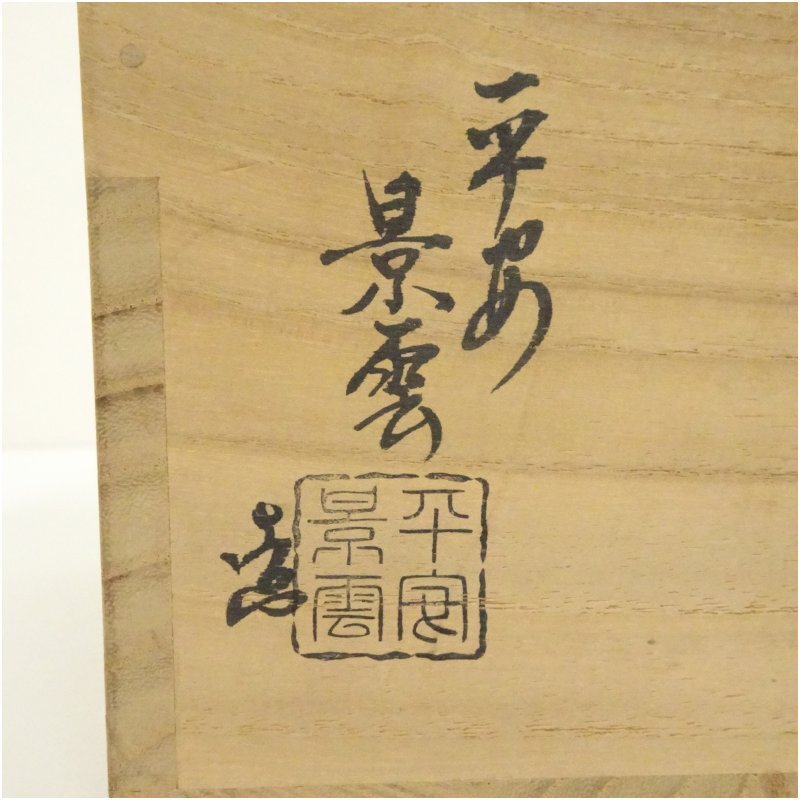 平安
景雲
造
平安
景雲